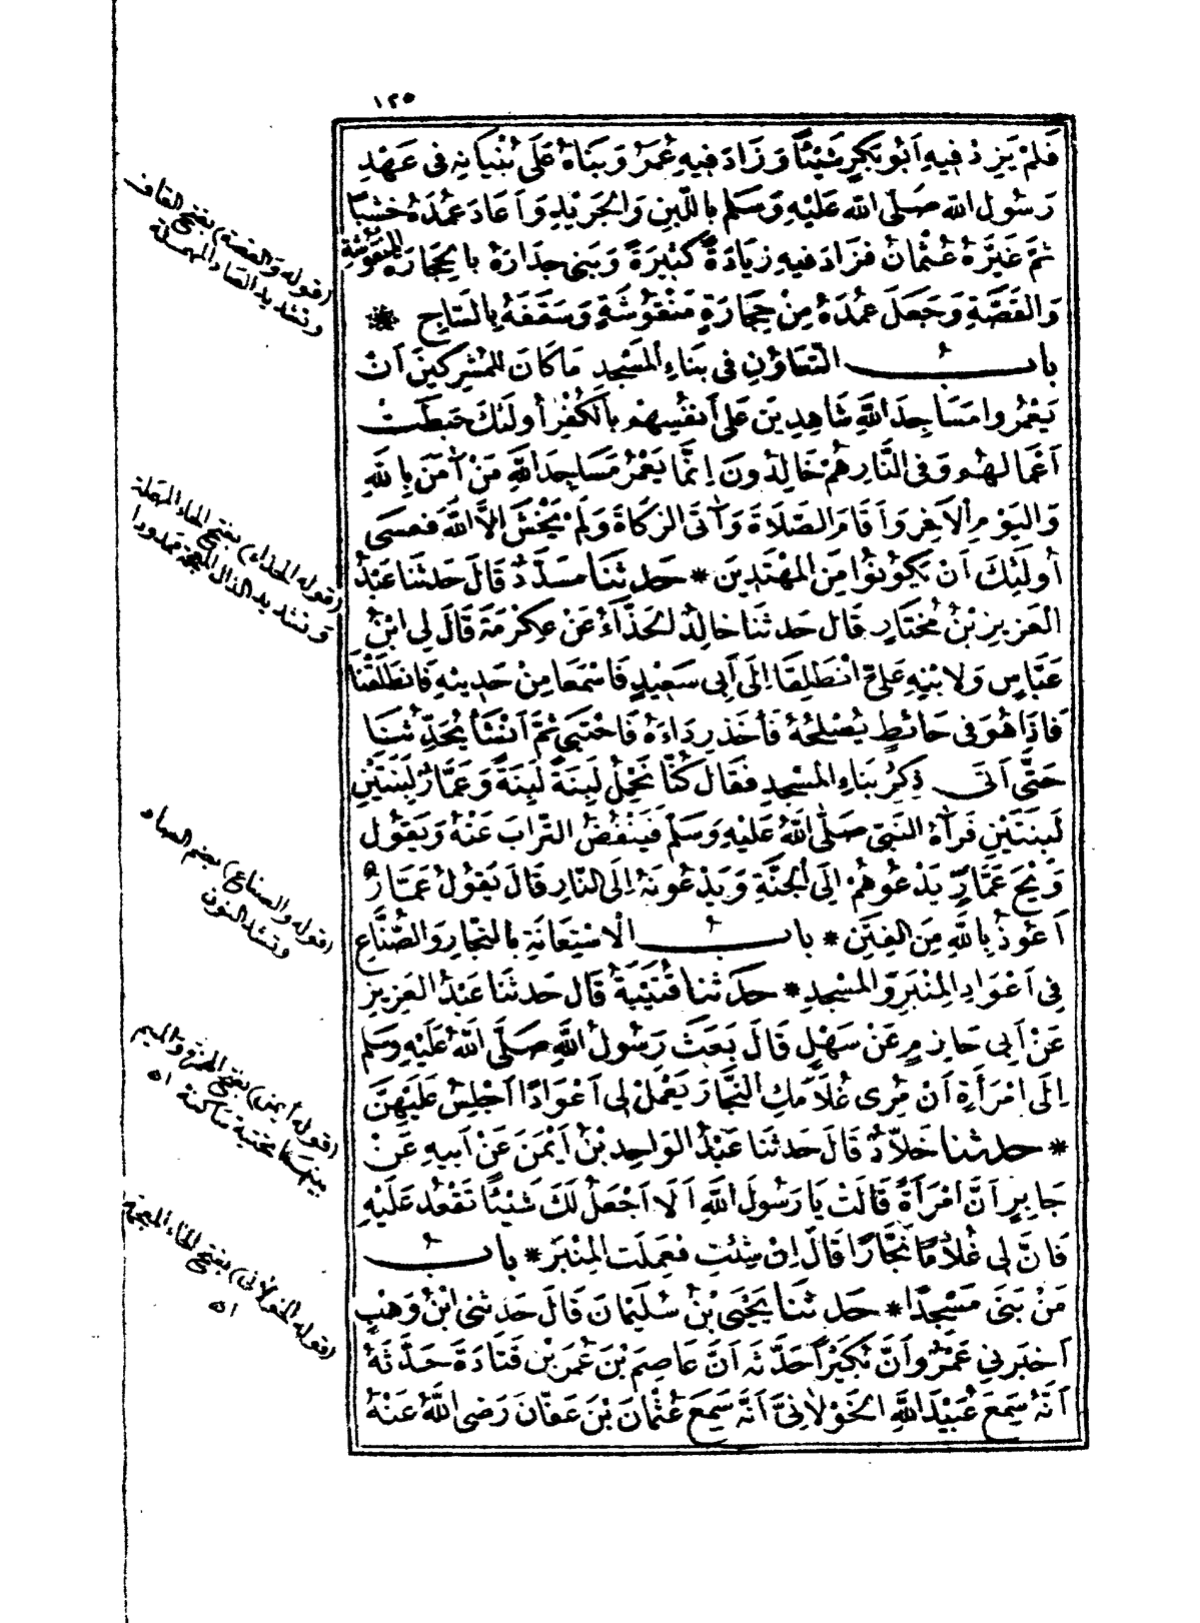 ١٢٥
فَلَمْ يَزِدْ فِيهِ أَبُو بَكْرٍ شَيْئًا وَزَادَ فِيهِ عُمَرُ وَبَنَاهُ عَلَى بُنْيَانِهِ فى عَهْدِ
رَسُولِ اللهِ صَلَّى اللهُ عَلَيْهِ وَسَلم بِاللَّبِنِ وَالجَرِيْدِ وَأَعَادَ عُمُدَهُ خَشَبًا
ثمَّ غَيَّرَهُ عُثْمَانُ فَزَادَ فيهِ زِيَادَةً كَثِيرَةً وَبَنى جِدَارَهُ بِالحِجَارَةِ المَنْقُوشَةِ
وَالقَصَّةِ وَجَعَلَ عُمُدَهُ مِنْ حِجَارَةٍ مَنْقُوشَةٍ وَسَقَفَهُ بِالسَّاجِ *
بابُ التَّعَاوُنِ فى بِنَاءِ المَسْجِدِ مَا كَانَ لِلْمُشْرِكِينَ أَنْ
يَعْمُرُوا مَسَاجِدَ اللَّهِ شَاهِدِينَ عَلَى أَنْفُسِهِمْ بِالكُفْرِ أُولَئِكَ حَبِطَتْ
أَعْمَالُهُمْ وَفى النَّارِ هُمْ خَالِدُونَ إِنَّمَا يَعْمُرُ مَسَاجِدَ اللَّهِ مَنْ آمَنَ بِاللَّهِ
وَاليَوْمِ الآخِرِ وَأَقَامَ الصَّلَاةَ وَآتَى الزَّكَاةَ وَلَمْ يَخْشَ إِلَّا اللَّهَ فَعَسَى
أُولَئِكَ أَنْ يَكُونُوا مِنَ المُهْتَدِينَ * حَدثَنَا مسَدَّدٌ قَالَ حَدثَنَا عَبْدُ
العَزِيزِ بْنُ مُخْتَارٍ قَال حَدثَنَا خَالِدٌ الحَذَّاءُ عَنْ عِكْرِمَةَ قَالَ لِى ابْنُ
عَبَّاسٍ وَلِابْنِهِ عَلِىٍّ انْطَلِقَا إِلَى أَبِى سَعِيْدٍ فَاسْمَعَا مِنْ حَدِيثِهِ فَانْطَلَقْنَا
فَإِذَا هُوَ فى حَائِطٍ يُصْلِحُهُ فَأَخَذَ رِدَاءَهُ فَاحْتَبَى ثمَّ أَنْشَأَ يُحَدِّثُنَا
حَتَّى أَتَى ذِكْرُ بِنَاءِ المَسْجِدِ فَقَالَ كُنَّا نَحْمِلُ لَبِنَةً لَبِنَةً وَعَمَّارٌ لَبِنَتَيْنِ
لَبِنَتَيْنِ فَرَآهُ النَّبِىّ صَلَّى اللَّهُ عَلَيْهِ وَسَلَّمَ فَيَنْفُضُ التُّرَابَ عَنْهُ وَيَقُولُ
وَيْحَ عَمَّارٍ يَدْعُوهُمْ إِلَى الجَنَّةِ وَيَدْعُونَهُ إِلَى النَّارِ قَالَ يَقُولُ عَمَّارٌ
أَعُوذُ بِاللَّهِ مِنَ الفِتَنِ * بابُ الْاسْتِعَانَةِ بِالنجَّارِ وَالصُّنَّاعِ
فِى أَعْوَادِ المِنْبَرِ وَالمَسْجِدِ * حَدَثنا قُتَيْبَةُ قَالَ حَدثنَا عَبْدُ العَزِيزِ
عَنْ أَبِى حَازِمٍ عَنْ سَهْلٍ قَالَ بَعَثَ رَسُولُ اللَّهِ صَلَّى اللَّهُ عَلَيْهِ وَسَلَّم
إِلَى امْرَأَةٍ أَنْ مُرِى غُلَامَكِ النَّجَّارَ يَعْمَلْ لِى أَعْوَادًا أَجْلِسُ عَلَيْهِنَّ
* حدثنا خَلَّادٌ قَالَ حَدثَنَا عَبْدُ الوَاحِدِ بْنُ أَيْمَنَ عَنْ أَبِيهِ عَنْ
جَابِرٍ أَنَّ امْرَأَةً قَالَتْ يَا رَسُولَ اللَّهِ أَلَا أَجْعَلُ لَكَ شَيْئًا تَقْعُد عَلَيْهِ
فَإِنَّ لِى غُلَامًا نَجَّارًا قَالَ إِنْ شِئْتِ فَعَمِلَت المِنْبَرَ * بابُ
مَنْ بَنَى مَسْجِدًا * حَدثَنَا يَحْيَى بْنُ سُلَيْمَانَ قَالَ حَدثنى ابْنُ وَهْبٍ
أَخبَرَنِى عَمْرٌو أَنَّ بُكَيْرًا حَدَّثَهُ أَنَّ عَاصِمَ بْنَ عُمَرَ بْنِ قَتَادَةَ حَدَّثَهُ
أَنَّهُ سَمِعَ عُبَيْدَ اللَّهِ الخَوْلَانِىَّ أَنَّهُ سَمِعَ عُثْمَانَ بْنَ عَفَّانَ رَضى اللَّهُ عَنْهُ
(قوله والقصة) بفتح القاف
وتشديد الصاد المهملة
(قوله الحذاء) بفتح الحاء المهملة
وتشديد الذال المعجمة ممدودا
(قوله والصناع) بضم الصاد
وتشد النون
(قوله أيمن) بفتح الهمزة والميم
بينهما تحتية ساكنة اه
(قوله الخولانى) بفتح الخاء المعجمة
اه